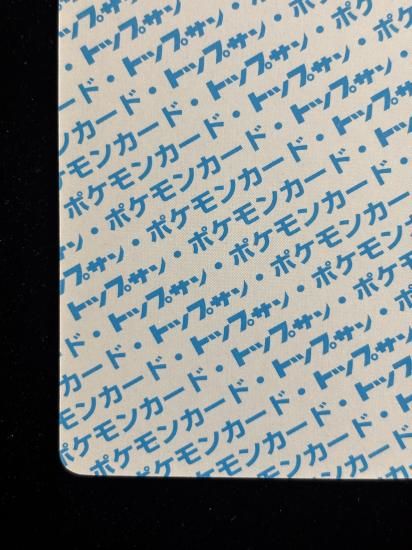 トップサン・ポケ
ード・トップサン・ポケ
カード・トップサン・ポ
モンカード・トップサン・
ケモンカード・トップサン
ポケモンカード・トップサン
・ポケモンカード・トップ
サン・ポケモンカード・
トップサン・ポケモンカード
・トップサン・ポケモンカー
ド・トップサン・ポケモン
カード・トップサン・ポケ
モンカード・トップサン・
ポケモンカード・トップサン
ポケモンカード・トップ
ポケモンカード
ポケモン